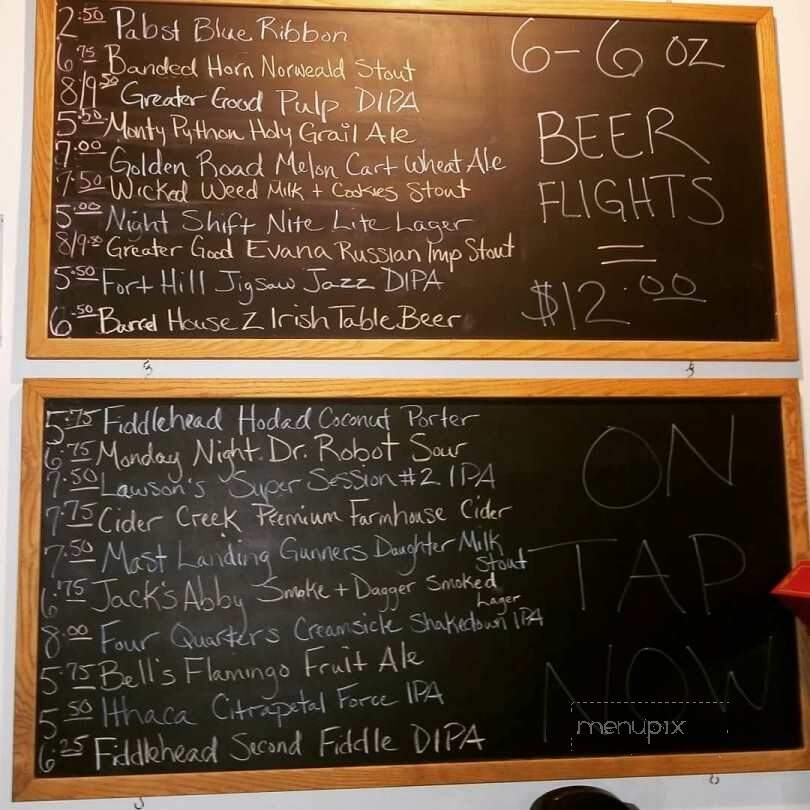 2.50 Pabst Blue Ribbon
6.75 Banded Horn Norweald Stout
8/9.50 Greater Good Pulp DIPA
5.50 Monty Python Holy Grail Ale
7.00 Golden Road Melon Cart Wheat Ale
7.50 Wicked Weed Milk + Cookies Stout
5.00 Night Shift Nite Lite Lager
8/9.50 Greater Good Evana Russian Imp Stout
5.50 Fort Hill Jigsaw Jazz DIPA
6.50 Barrel House Z Irish Table Beer
6-6 oz
BEER
FLIGHTS
=
$12.00
5.75 Fiddlehead Hodad Coconut Porter
6.75 Monday Night Dr. Robot Sour
7.50 Lawson's Super Session #2 IPA
7.75 Cider Creek Premium Farmhouse Cider
7.50 Mast Landing Gunners Daughter Milk
Stout
6.75 Jack's Abby Smoke + Dagger Smoked
Lager
8.00 Four Quarters Creamsicle Shakedown IPA
5.75 Bell's Flamingo Fruit Ale
5.50 Ithaca Citrapetal Force IPA
6.25 Fiddlehead Second Fiddle DIPA
ON
TAP
NOW
menupix